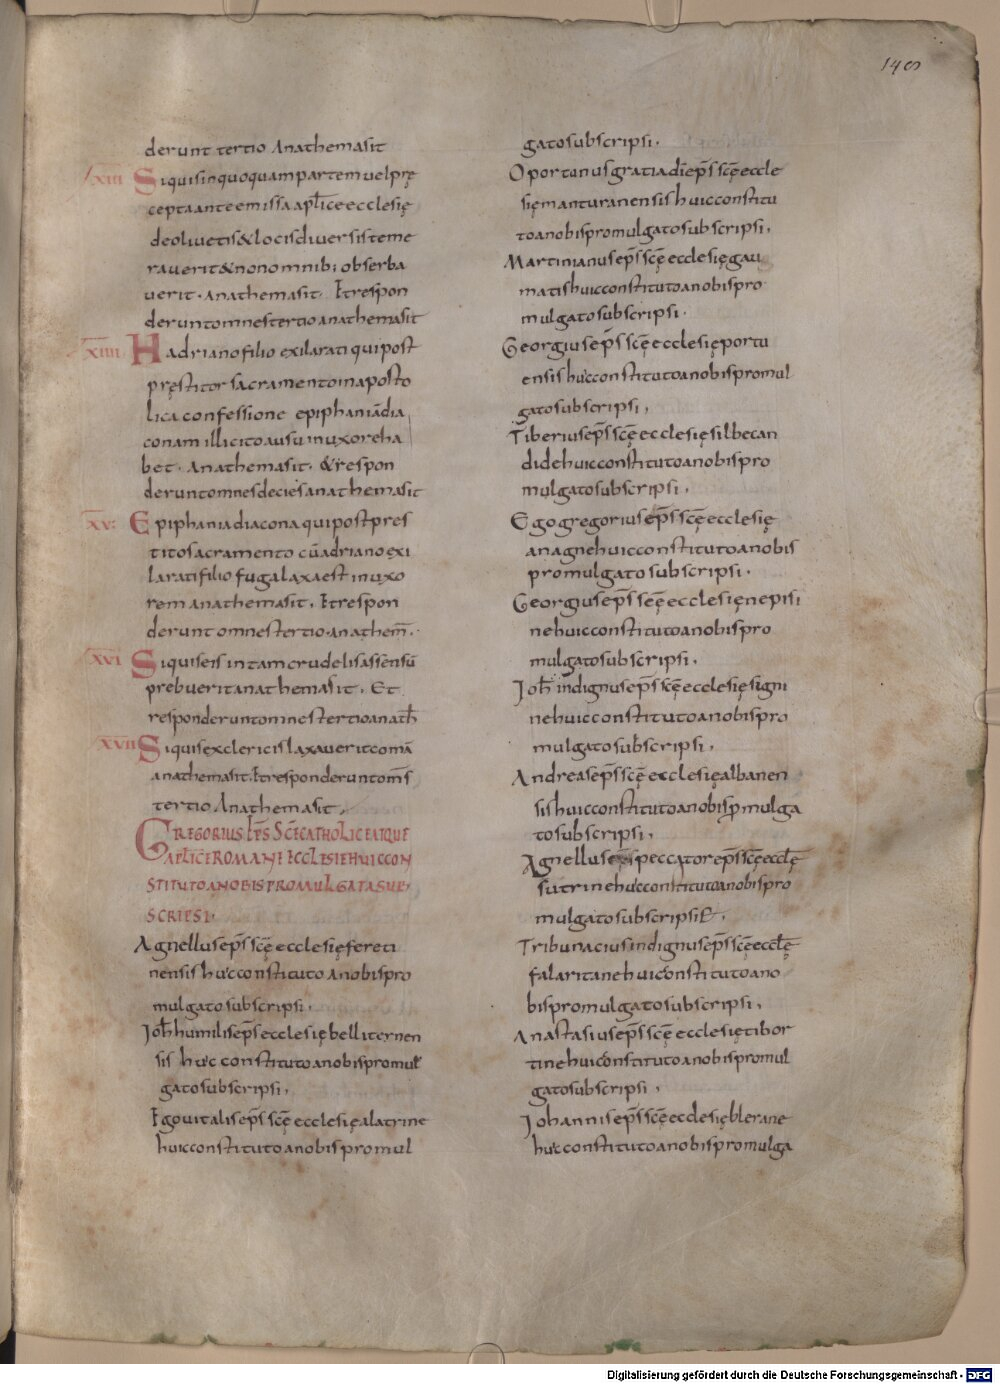 140
derunt tertio Anathemasit
XIII Siquisinquoquampartemuelprę
ceptaanteemissaapl̄iceecclesię
deoliuetis&locisdiuersisteme
rauerit&nonomnib; obserba
uerit. Anathemasit. Etrespon
deruntomnestertioanathemasit
XIIII Hadrianofilio exilarati quipost
pręstitor sacramentoinaposto
lica confessione epiphaniādia
conam illicitoausuinuxoreha
bet. Anathemasit. &respon
deruntomnesdeciesanathemasit
XV: Epiphaniadiaconaquipostpres
titosacramento cūadrianoexi
laratifilio fugalaxaest inuxo
rem anathemasit. Etrespon
derunt omnestertio.anathem̄.
XVI Siquiseis intamcrudelisassensū
prebueritanathemasit. Et
responderuntomnestertioanath̄
XVII Siquisexclericislaxaueritcomā
anathemasit.Etresponderuntom̄s
tertio Anathemasit.
GREGORIUS EP̄S SC̄ECATHOLICEATQUE
APL̄ICEROMANE ECCLESIEHUICCON
STITUTOANOBISPROMULGATASUB
SCRIPSI.
Agnelluseps̄ sc̄ę ecclesięfereti
nensishuicconstituto anobispro
mulgatosubscripsi.
Joh̄humiliseps̄ecclesię belliternen
sis huic constitutoanobispromul
gatosubscripsi.
Egouitaliseps̄ sc̄ę ecclesięalatrine
huicconstitutoanobispromul
gatosubscripsi.
Oportunusgratiadīeps̄ sc̄ęeccle
sięmanturanensishuicconstitu
toanobispromulgatosubscripsi.
Martinianuseps̄sc̄ęecclesięgau
matishuicconstitutoanobispro
mulgatosubscripsi.
Georgiuseps̄ sc̄ęecclesięportu
ensishuicconstitutoanobispromul
gatosubscripsi.
Tiberiuseps̄ sc̄ę ecclesięsilbecan
didehuicconstitutoanobispro
mulgatosubscripsi.
Egogregoriuseps̄sc̄ęecclesię
anagnehuicconstitutoanobis
promulgatosubscripsi.
Georgiuseps̄ sc̄ęecclesięnepisi
nehuicconstitutoanobispro
mulgatosubscripsi.
Joh̄ indignuseps̄ sc̄ęecclesięsigni
nehuicconstitutoanobispro
mulgatosubscripsi.
Andreaseps̄sc̄ęecclesięalbanen
sishuicconstitutoanobisp̄mulga
tosubscripsi.
Agnellus peccatoreps̄sc̄ęeccl̄ę
sutrinehuicconstitutoanobispro
mulgatosubscripsi.
Tribunaciusindignuseps̄sc̄ęeccl̄ę
falaritanehuicconstitutoano
bispromulgatosubscripsi.
Anastasiuseps̄ sc̄ę ecclesiętibor
tinehuicconstitutoanobispromul
gatosubscripsi.
Johanniseps̄ sc̄ęecclesięblerane
huicconstitutoanobispromulga
Digitalisierung gefördert durch die Deutsche Forschungsgemeinschaft - DFG